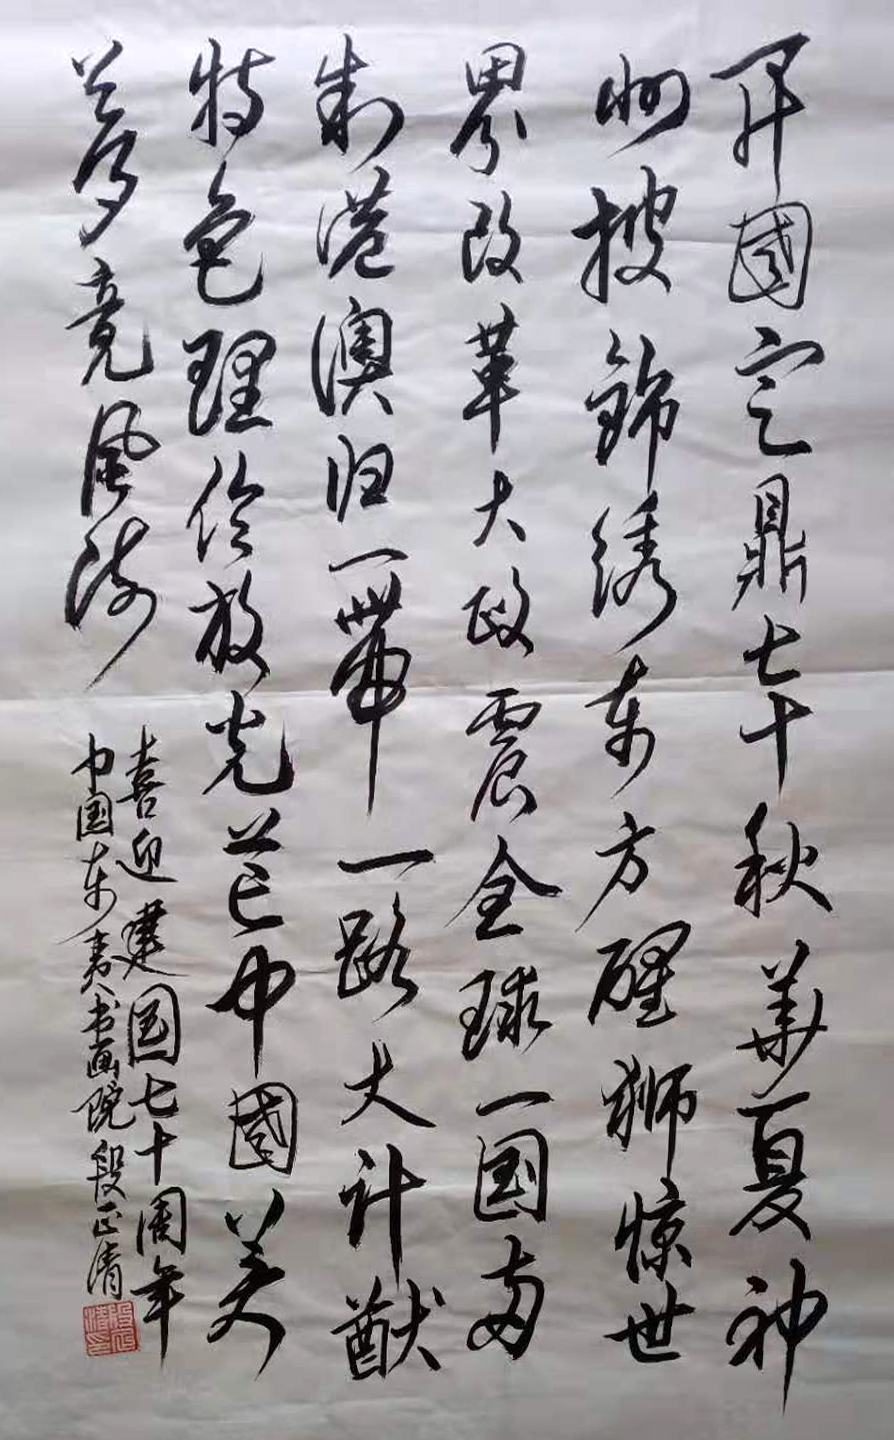 开國定鼎七十秋華夏神
州披錦绣东方醒狮惊世
界改革大政震全球一国两
制港澳归一帶一路大计猷
特色理论放光芒中國美
梦竞风流
喜迎建国七十周年
中国东书画院段正清
段正清印